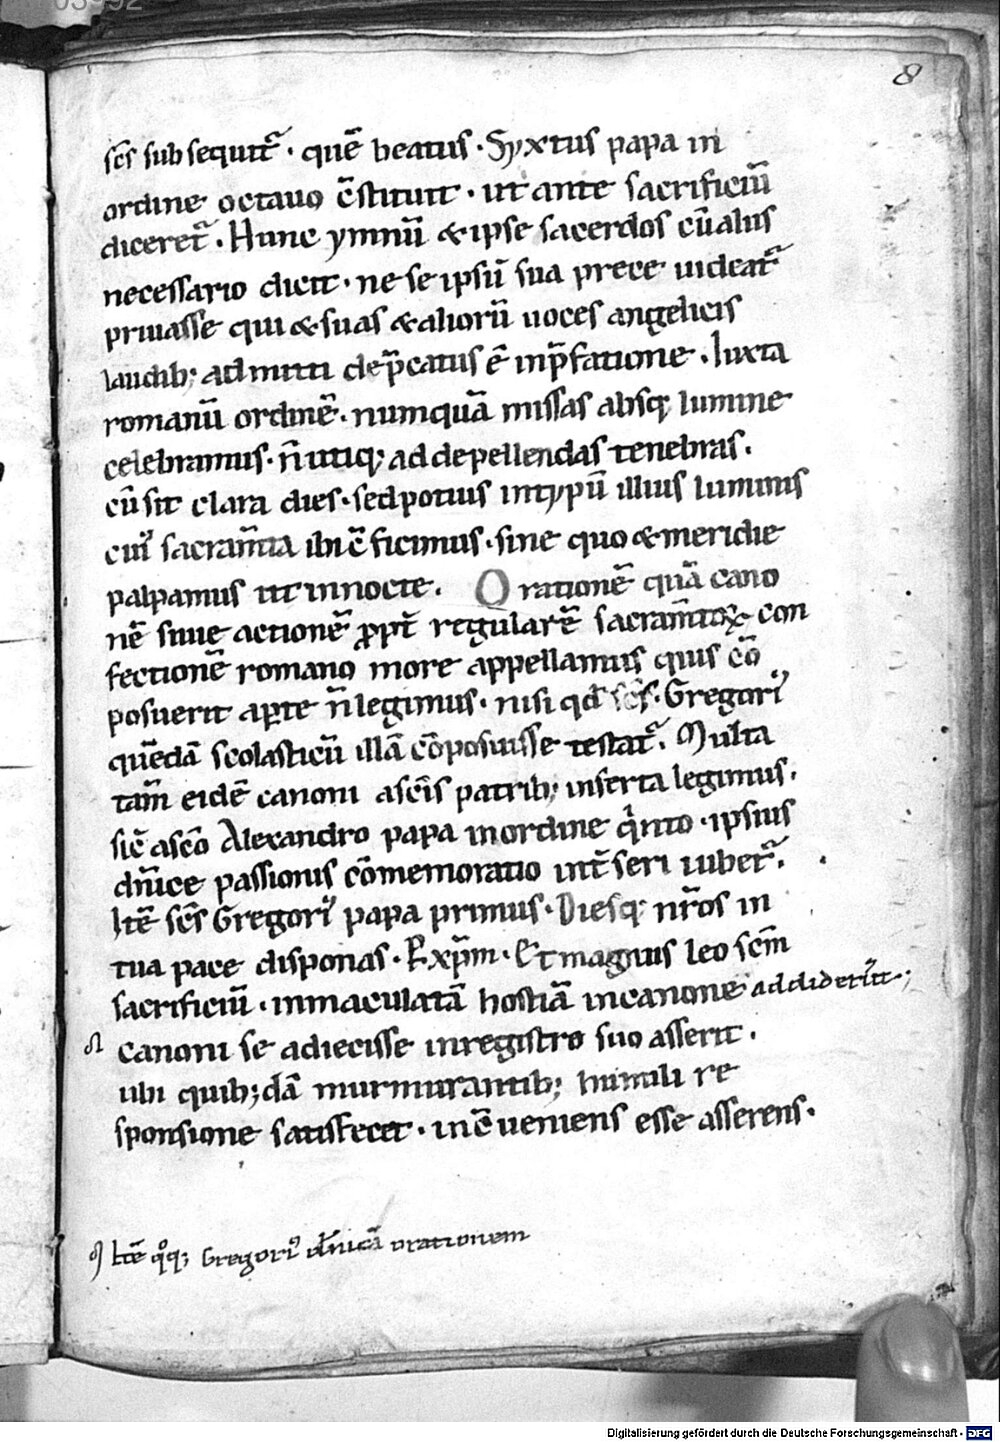 8
sc̄s subsequit᷑ · quē beatus · Syxtus papa in
ordine octauo c̄stituit · ut ante sacrificiū
diceret᷑ · Hunc ymnū & ipse sacerdos cū aliis
necessario dicit · ne se ipsū sua prece uideat᷑
priuasse qui & suas & aliorū uoces angelicis
laudib; admitti dep̄catus ē inp̄fatione · Iuxta
romanū ordinē · numquā missas absq; lumine
celebramus · n̄ utiq; ad depellendas tenebras ·
cū sit clara dies · sed potius intypū illius luminis
cui᷒ sacram̄ta ibi c̄ficimus · sine quo & meridie
palpamus ut innocte . Orationē quā cano
nē siue actionē ꝓpt̄ regularē sacram̄toꝝ con
fectionē romano more appellamus quis cō
posuerit aꝑte n̄ legimus · nisi qd̄ sc̄s · Gregori᷒
quēdā scolasticū illā cōposuisse testat᷑ . Multa
tam̄ eidē canoni asc̄is patrib; inserta legimus .
sic̄ asc̄o Alexandro papa inordine qͥnto · ipsius
dn̄ice passionis cōmemoratio int̄seri iubet᷑ .
Itē sc̄s Gregori᷒ papa primus · Diesq; nr̄os in
tua pace disponas · Et magnus leo sc̄m
sacrificiū · inmaculatā hostiā incanone addiderūt ;
canoni se adiecisse inregistro suo asserit .
ubi quib; dā murmurantib; humili re
sponsione satisfecit · inc̄ueniens esse asserens .
Itē qͦq; Gregori᷒ dn̄icā orationem
Digitalisierung gefördert durch die Deutsche Forschungsgemeinschaft - DFG